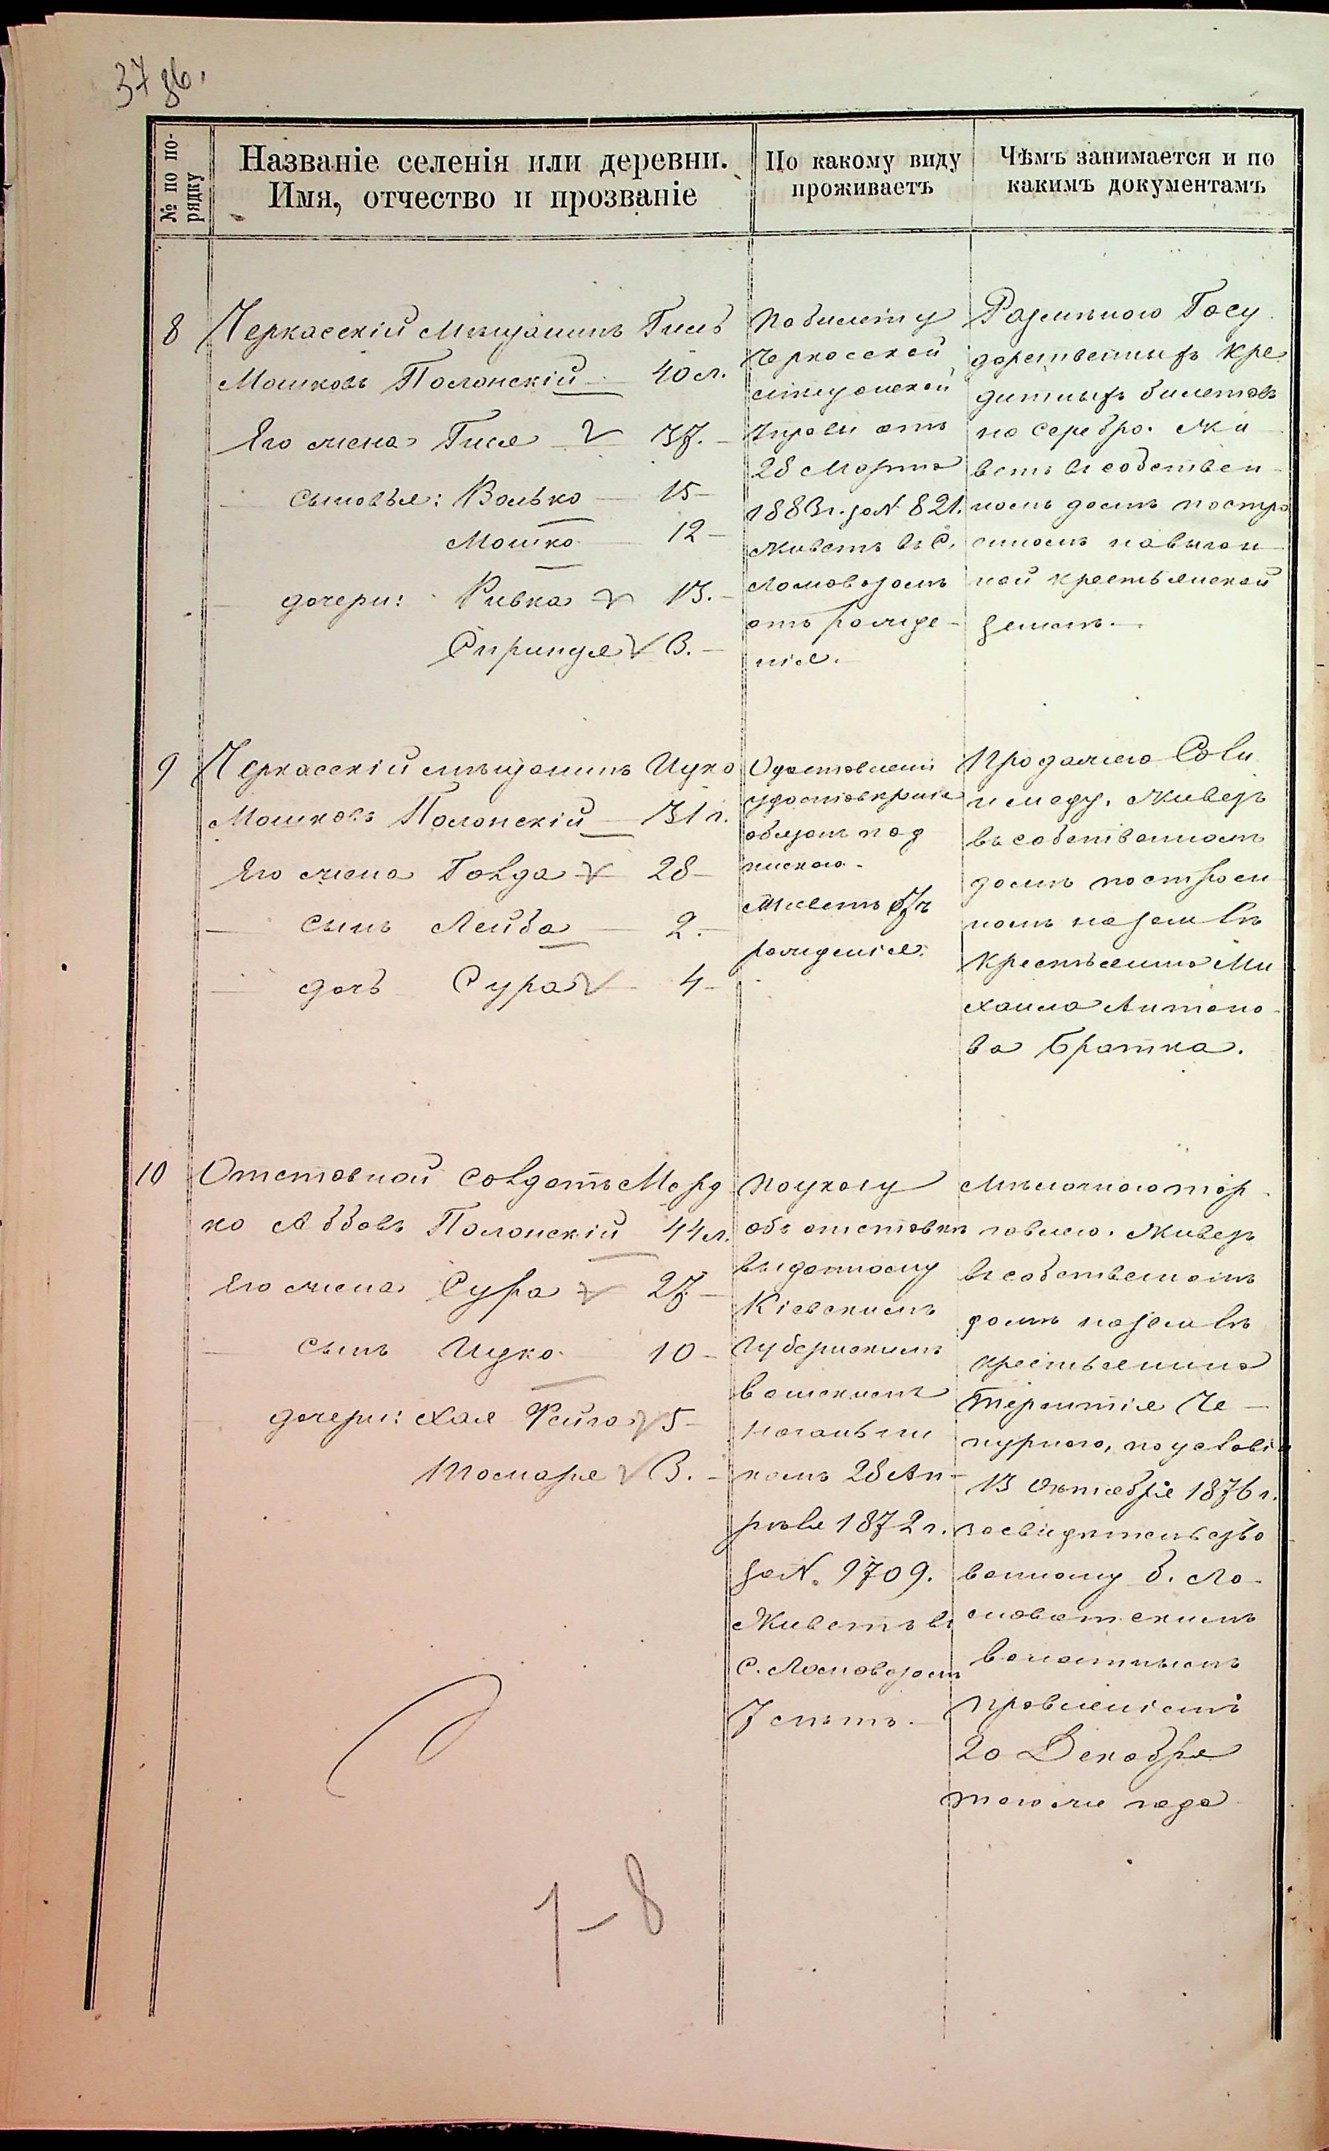 37 об.
№ по по-
рядку
Названіе селенія или деревни.
Имя, отчество и прозваніе
По какому виду
проживаетъ
Чѣмъ занимается и по
какимъ документамъ
8
Черкасскій мѣщанинъ Гиль
Мошковъ Полонскій — 40 л.
Его жена Гися 37. –
сыновья: Волько — 15 –
Мошко — 12 –
дочери: Ривка 13. –
Спринця 3. –
По билету
Черкасской
мѣщанской
Управы отъ
28 Марта
1883 г. за № 821.
живетъ въ с.
Ломоватомъ
отъ рожде-
нія.
Размѣномъ Госу
дарственныхъ кре
дитныхъ билетовъ
на серебро. Жи
ветъ въ собствен-
номъ домѣ постро
енномъ на выгон-
ной крестьянской
земли. –
9
Черкасскій мѣщанинъ Ицко
Мошковъ Полонскій — 31 л.
Его жена Голда 28 –
сынъ Лейба — 2. –
дочь Сура 4 –
О доставленіи
удостовѣренія
обязанъ под
пискою.
Живетъ отъ
рожденія.
Продажею Соли
и меду. Живетъ
въ собственномъ
домѣ построен
номъ на землѣ
крестьянина Ми
хаила Антоно-
ва Братка.
10
Отставной солдатъ Морд
ко Аббовъ Полонскій 44 л.
Его жена Сура 27 –
сынъ Ицко — 10 –
дочери: Хая Фейга 5 –
Томаря 3. –
По указу
объ отставкѣ
выданному
Кіевскимъ
Губернскимъ
воинскимъ
Начальни
комъ 28 Ап-
рѣля 1872 г.
за № 9709.
Живетъ въ
с. Ломоватомъ
7 лѣтъ.
Мѣлочною тор-
говлею. Живетъ
въ собственномъ
домѣ на землѣ
крестьянина
Терентія Че –
пурного, по условію
13 Октября 1876 г.
засвидѣтельство
ванному б. Ло-
моватскимъ
волостнымъ
правленіемъ
20 Декабря
того же года
1–8